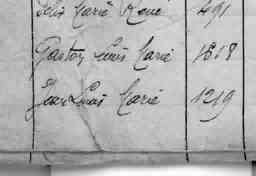 Félix Marie René 491
Gaston Louis Marie 1818
Jean Louis Marie 1219